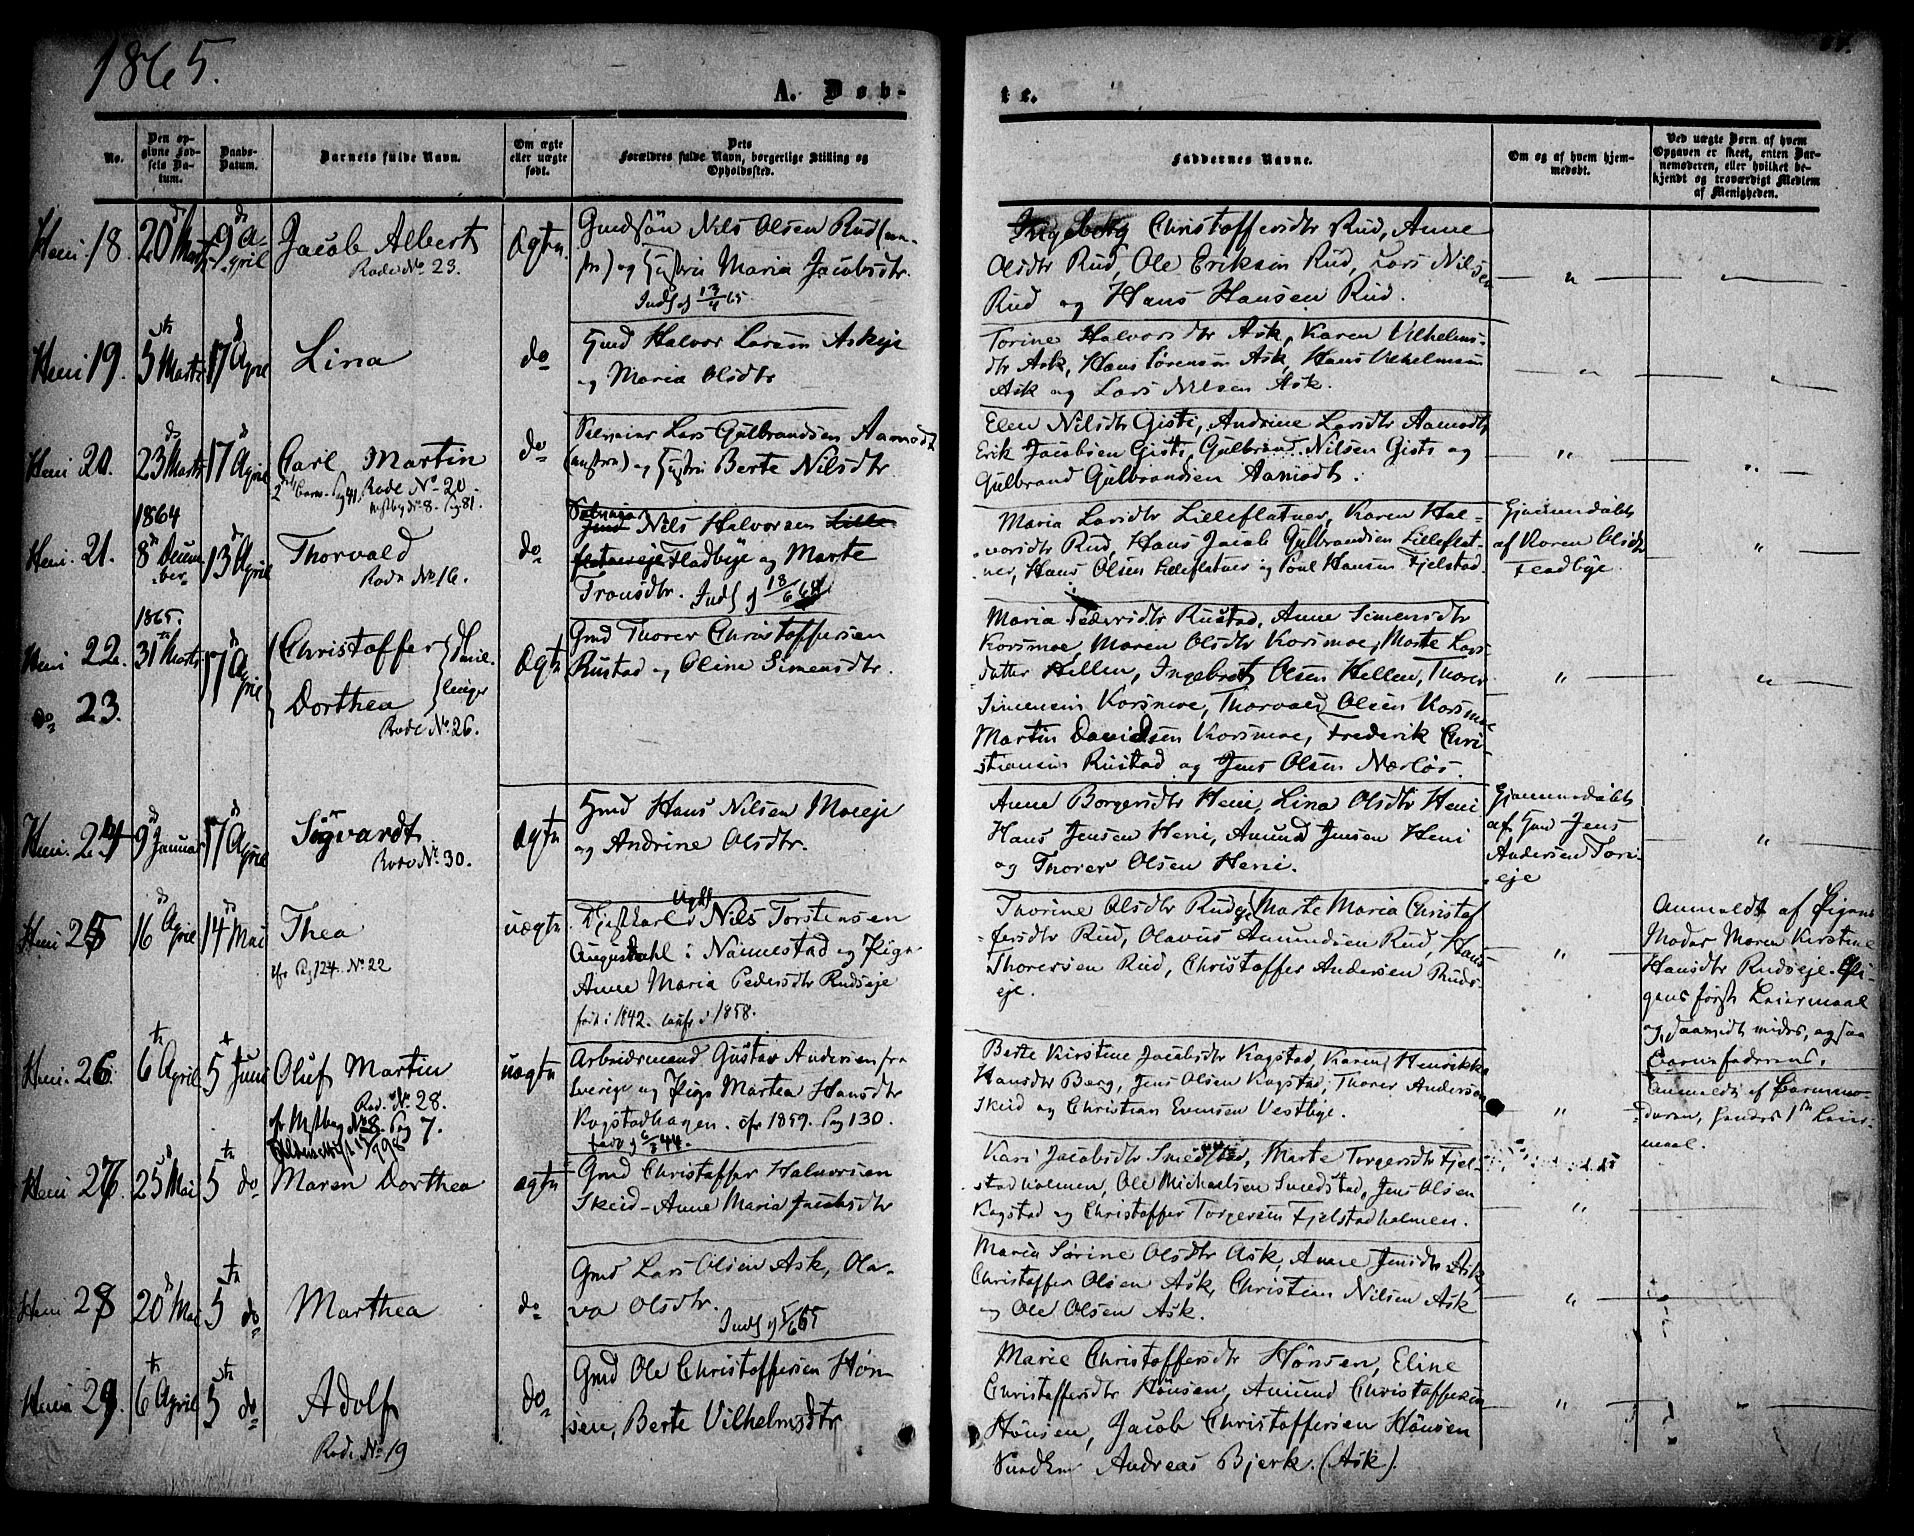 1865.
A. Døb-
te.
No.
Den op-
givne Fød-
sels Da-
tum.
Daabs-
Datum.
Barnets fulde Navn.
Om ægte
eller uægte
født.
Dets
Forældres fulde Navn, borgerlige Stilling og
Opholdssted.
Faddernes Navne.
Om og af hvem hjem-
medøbt.
Ved uægte Børn af hvem
Opgaven er skeet, enten Bar-
nemoderen, eller hvilket be-
kjendt og troværdigt Medlem
af Menigheden.
Heni 18. 20de Marts 9de April
Jacob Albert
Rode No 23.
Ægte
Gmdsøn Nils Olsen Rud
og Maria Jacobsdtr.
Inds. 13/4 65
Ingeborg Christoffersdtr Rud, Anne
Olsdtr Rud, Ole Eriksen Rud, Lars Nilsen
Rud og Hans Hansen Rud.
Heni 19. 5te Marts 17de April
Lina
do
Hmd Halvor Larsen Askeje
og Maria Olsdtr
Torine Halvorsdtr Ask, Karen Vilhelms-
dtr Ask, Hans Sørensen Ask, Hans Vilhelmsen
Ask og Lars Nilsen Ask.
Heni 20. 23de Marts 17de April
Carl Martin
Rode No 20
do
Lars Gulbrandsen Aamodt
og Berte Nilsdtr
Elen Nilsdtr Gisti, Andrine Larsdtr Aamodt,
Erik Jacobsen Gisti, Gulbrand Nilsen Gisti og
Gulbrand Gulbrandsen Aamodt.
1864
Heni. 21. 8de Decem-
ber 13de April
Thorvald
Rode No 16.
do
Nils Halvorsen Lille-
flatnereje Fladbyeje og Marte
Tronsdtr. Inds. 18/6 64
Maria Larsdtr Lilleflatner, Karen Hal-
vorsdtr Rud, Hans Jacob Gulbrandsen Lilleflat-
ner, Hans Olsen Lilleflatner og Poul Hansen Fjelstad.
Hjemmedøbt
af Karen Olsdtr
Fladbye.
1865.
Heni 22. 31te Marts 17de April
do 23.
Christoffer
Dorthea
Tvil-
linger
Rode No 26.
Ægte
Gmd Thorer Christoffersen
Rustad og Oline Simensdtr.
Maria Pedersdtr Rustad, Anne Simensdtr
Korsmoe, Maren Olsdtr Korsmoe, Marte Lars-
datter Hellen, Ingebret Olsen Hellen, Thorer
Simensen Korsmoe, Thorvald Olsen Korsmoe
Martin Davidsen Korsmoe, Frederik Chri-
stiansen Rustad og Jens Olsen Nærløs.
Heni. 24. 9de Januar 17de April
Sigvardt
Rode No 30.
Ægte
Hmd Hans Nilsen Moeeje
og Andrine Olsdtr.
Anne Borgersdtr Heni, Lina Olsdtr Heni
Hans Jensen Heni, Amund Jensen Heni
og Thorer Olsen Heni.
Hjemmedøbt
af Jens
Andersen
eje
Heni 25 16de April 14de Mai
Thea
cfr Pg 124. No 22
uægte
Nils Torstensen
i Nannestad og Pige
Anne Maria Pedersdtr Rudseje
født i 1842. conf. i 1858.
Thorine Olsdtr Rudseje, Marte Maria Christof-
fersdtr Rud, Olavus Amundsen Rud, Hans
Thorersen Rud, Christoffer Andersen Ruds-
eje.
Anmeldt af Pigens
Moder Maren Kirstine
Hansdtr Rudseje. Pi-
gens første Leiermaal
Barnefaderens.
Heni. 26. 6te April 5te Juni
Oluf Martin
Rod. No 28.
uægte
Arbeidsmand Gustav Andersen fra
Sverige og Pige Martea Hansdtr
Kogstadhagen. cfr 1859. Pag 130.
Berte Kirstine Jacobsdtr Kogstad, Karen Henrikke
Hansdtr Berg, Jens Olsen Kogstad, Thorer Andersen
Skeid og Christian Evensen Vestlige.
Anmeldt af Barnemo-
deren, hendes 1ste Leier-
maal.
Heni 27. 25de Mai 5te do
Maren Dorthea
ægte
Gmd Christoffer Halvorsen
Skeid - Anne Maria Jacobsdtr
Kari Jacobsdtr Smedstad, Marte Torgersdtr Fjel-
stadholmen, Ole Michaelsen Smedstad, Jens Olsen
Kogstad og Christoffer Torgersen Fjelstadholmen.
Heni 28 20de Mai 5te do
Marthea
do
Gmd Lars Olsen Ask, Ola-
va Olsdtr.
Inds. 5/6 65
Maria Sørine Olsdtr Ask, Anne Jensdtr Ask,
Christoffer Olsen Ask, Christian Nilsen Ask
og Ole Olsen Ask.
Heni 29. 6te April 5te do
Adolf
Rode No 19
do
Gmd Ole Christoffersen Høn-
sen, Berte Vilhelmsdtr
Marie Christoffersdtr Hønsen, Eline
Christoffersdtr Hønsen, Amund Christoffersen
Hønsen, Jacob Christoffersen Hønsen
Andreas Bjerk. (Ask).